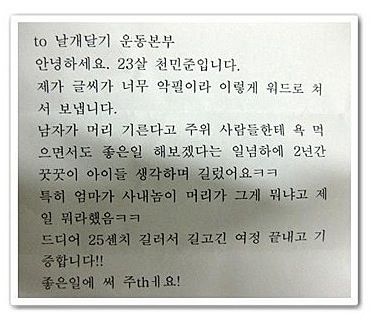 to 날개달기 운동본부
안녕하세요. 23살 천민준입니다.
제가 글씨가 너무 악필이라 이렇게 워드로 쳐
서 보냅니다.
남자가 머리 기른다고 주위 사람들한테 욕 먹
으면서도 좋은일 해보겠다는 일념하에 2년간
꿋꿋이 아이들 생각하며 길렀어요ㅋㅋ
특히 엄마가 사내놈이 머리가 그게 뭐냐고 제
일 뭐라했음ㅋㅋ
드디어 25센치 길러서 길고긴 여정 끝내고 기
증합니다!!
좋은일에 써 주thㅔ요!